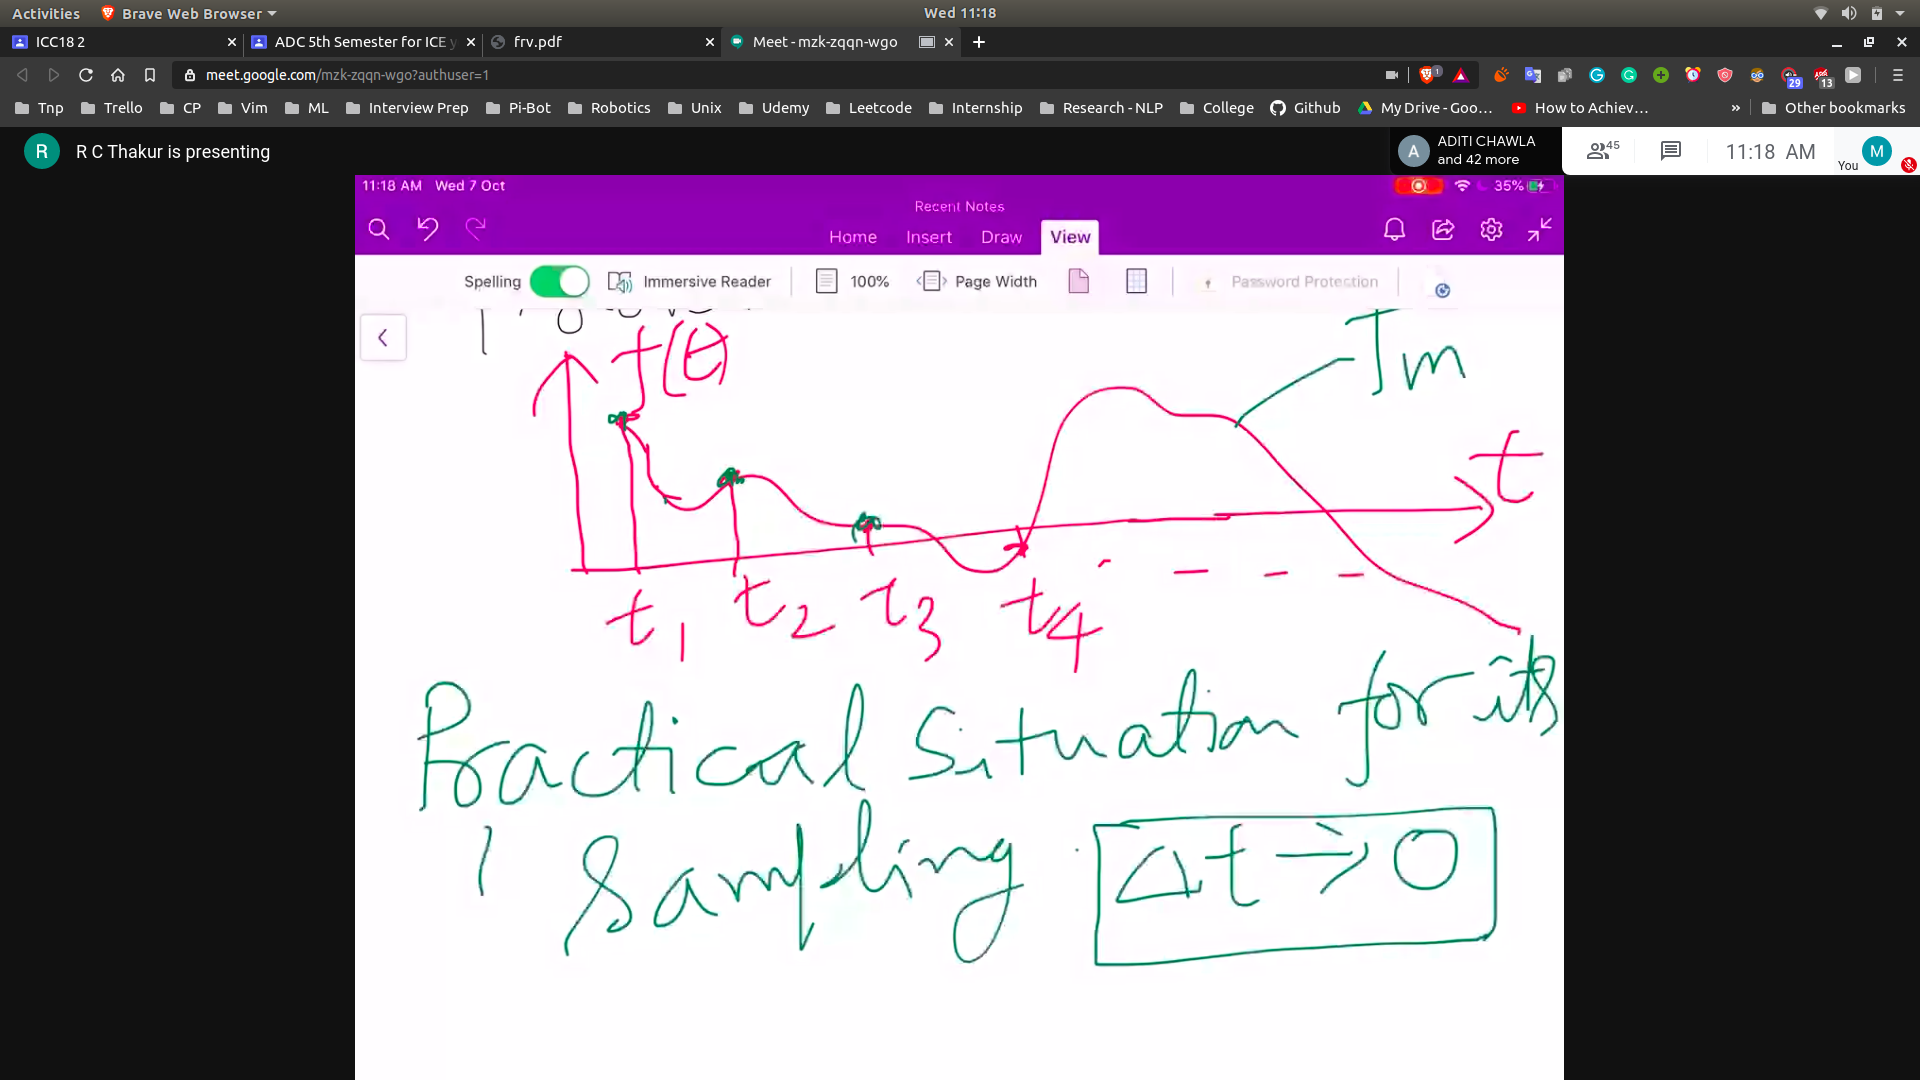 Activities Brave Web Browser Wed 11:18
ICC18 2 ADC 5th Semester for ICE frv.pdf Meet - mzk-zqqn-wgo
meet.google.com/mzk-zqqn-wgo?authuser=1 1 29 13
Tnp Trello CP Vim ML Interview Prep Pi-Bot Robotics Unix Udemy Leetcode Internship Research - NLP College Github My Drive - Goo... How to Achiev... » Other bookmarks
R R C Thakur is presenting A ADITI CHAWLA and 42 more 45 11:18 AM You M
11:18 AM Wed 7 Oct 35%
Recent Notes
Home Insert Draw View
Spelling Immersive Reader 100% Page Width Password Protection
f(t)
m
t
t1 t2 t3 t4
Practical Situation for its
Sampling Δt → 0